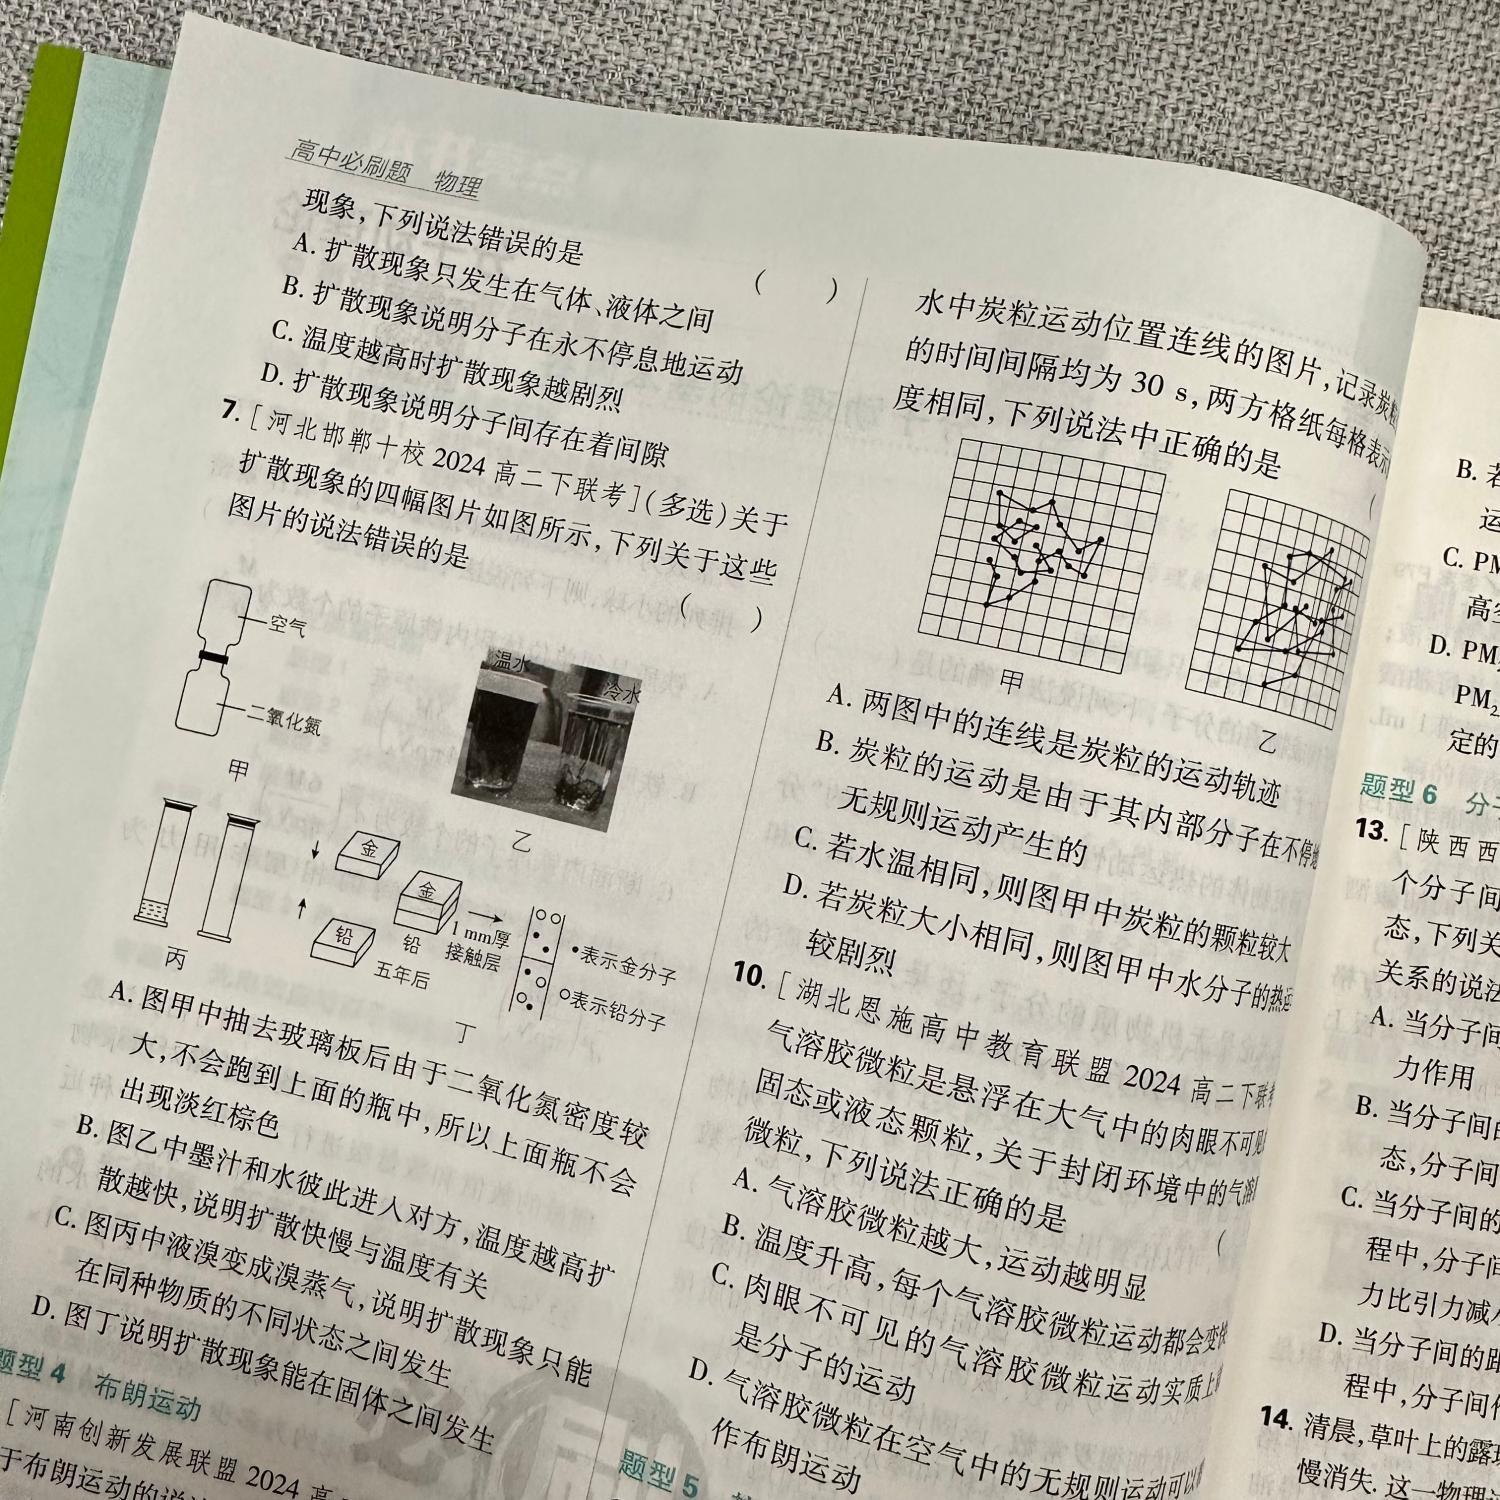 高中必刷题 物理
现象,下列说法错误的是
( )
A. 扩散现象只发生在气体、液体之间
B. 扩散现象说明分子在永不停息地运动
C. 温度越高时扩散现象越剧烈
D. 扩散现象说明分子间存在着间隙
7. [河北邯郸十校 2024 高二下联考](多选)关于
扩散现象的四幅图片如图所示,下列关于这些
图片的说法错误的是
( )
空气
二氧化氮
甲
温水
冷水
乙
丙
金
铅
金
铅
五年后
1 mm厚
接触层
•表示金分子
○表示铅分子
丁
A. 图甲中抽去玻璃板后由于二氧化氮密度较
大,不会跑到上面的瓶中,所以上面瓶不会
出现淡红棕色
B. 图乙中墨汁和水彼此进入对方,温度越高扩
散越快,说明扩散快慢与温度有关
C. 图丙中液溴变成溴蒸气,说明扩散现象只能
在同种物质的不同状态之间发生
D. 图丁说明扩散现象能在固体之间发生
题型 4 布朗运动
[河南创新发展联盟 2024 高
于布朗运动的说
水中炭粒运动位置连线的图片,记录炭粒
的时间间隔均为 30 s,两方格纸每格表示
度相同,下列说法中正确的是
(
甲
乙
A. 两图中的连线是炭粒的运动轨迹
B. 炭粒的运动是由于其内部分子在不停地
无规则运动产生的
C. 若水温相同,则图甲中炭粒的颗粒较大
D. 若炭粒大小相同,则图甲中水分子的热运
较剧烈
10. [湖北恩施高中教育联盟 2024 高二下联考
气溶胶微粒是悬浮在大气中的肉眼不可见
固态或液态颗粒,关于封闭环境中的气溶
微粒,下列说法正确的是
(
A. 气溶胶微粒越大,运动越明显
B. 温度升高,每个气溶胶微粒运动都会变
C. 肉眼不可见的气溶胶微粒运动实质上
是分子的运动
D. 气溶胶微粒在空气中的无规则运动可以
作布朗运动
题型 5
B. 若
运
C. PM
高空
D. PM
PM2
定的
题型 6 分子
13. [陕西西
个分子间
态,下列关
关系的说法
A. 当分子间
力作用
B. 当分子间
态,分子间
C. 当分子间的
程中,分子间
力比引力减
D. 当分子间的距
程中,分子间作
14. 清晨,草叶上的露珠
慢消失. 这一物理